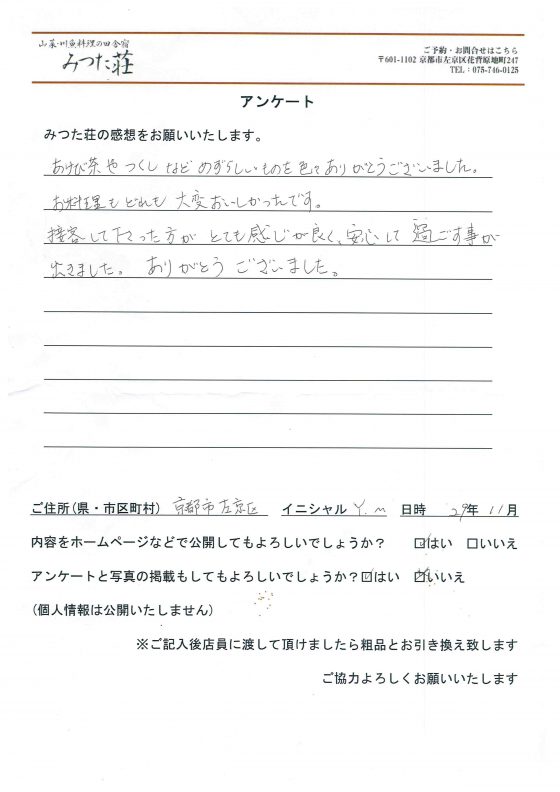 山菜・川魚料理の田舎宿
みつた荘
ご予約・お問合せはこちら
〒601-1102 京都市左京区花背原地町247
TEL：075-746-0125
アンケート
みつた荘の感想をお願いいたします。
あけび茶やつくしなどめずらしいものを色々ありがとうございました。
お料理もどれも大変おいしかったです。
接客して下さった方がとても感じが良く、安心して過ごす事が
出きました。ありがとうございました。
ご住所(県・市区町村) 京都市左京区 イニシャル Y.m 日時 29年11月
内容をホームページなどで公開してもよろしいでしょうか？ ☑はい □いいえ
アンケートと写真の掲載もしてもよろしいでしょうか？☑はい ☑いいえ
(個人情報は公開いたしません)
※ご記入後店員に渡して頂けましたら粗品とお引き換え致します
ご協力よろしくお願いいたします